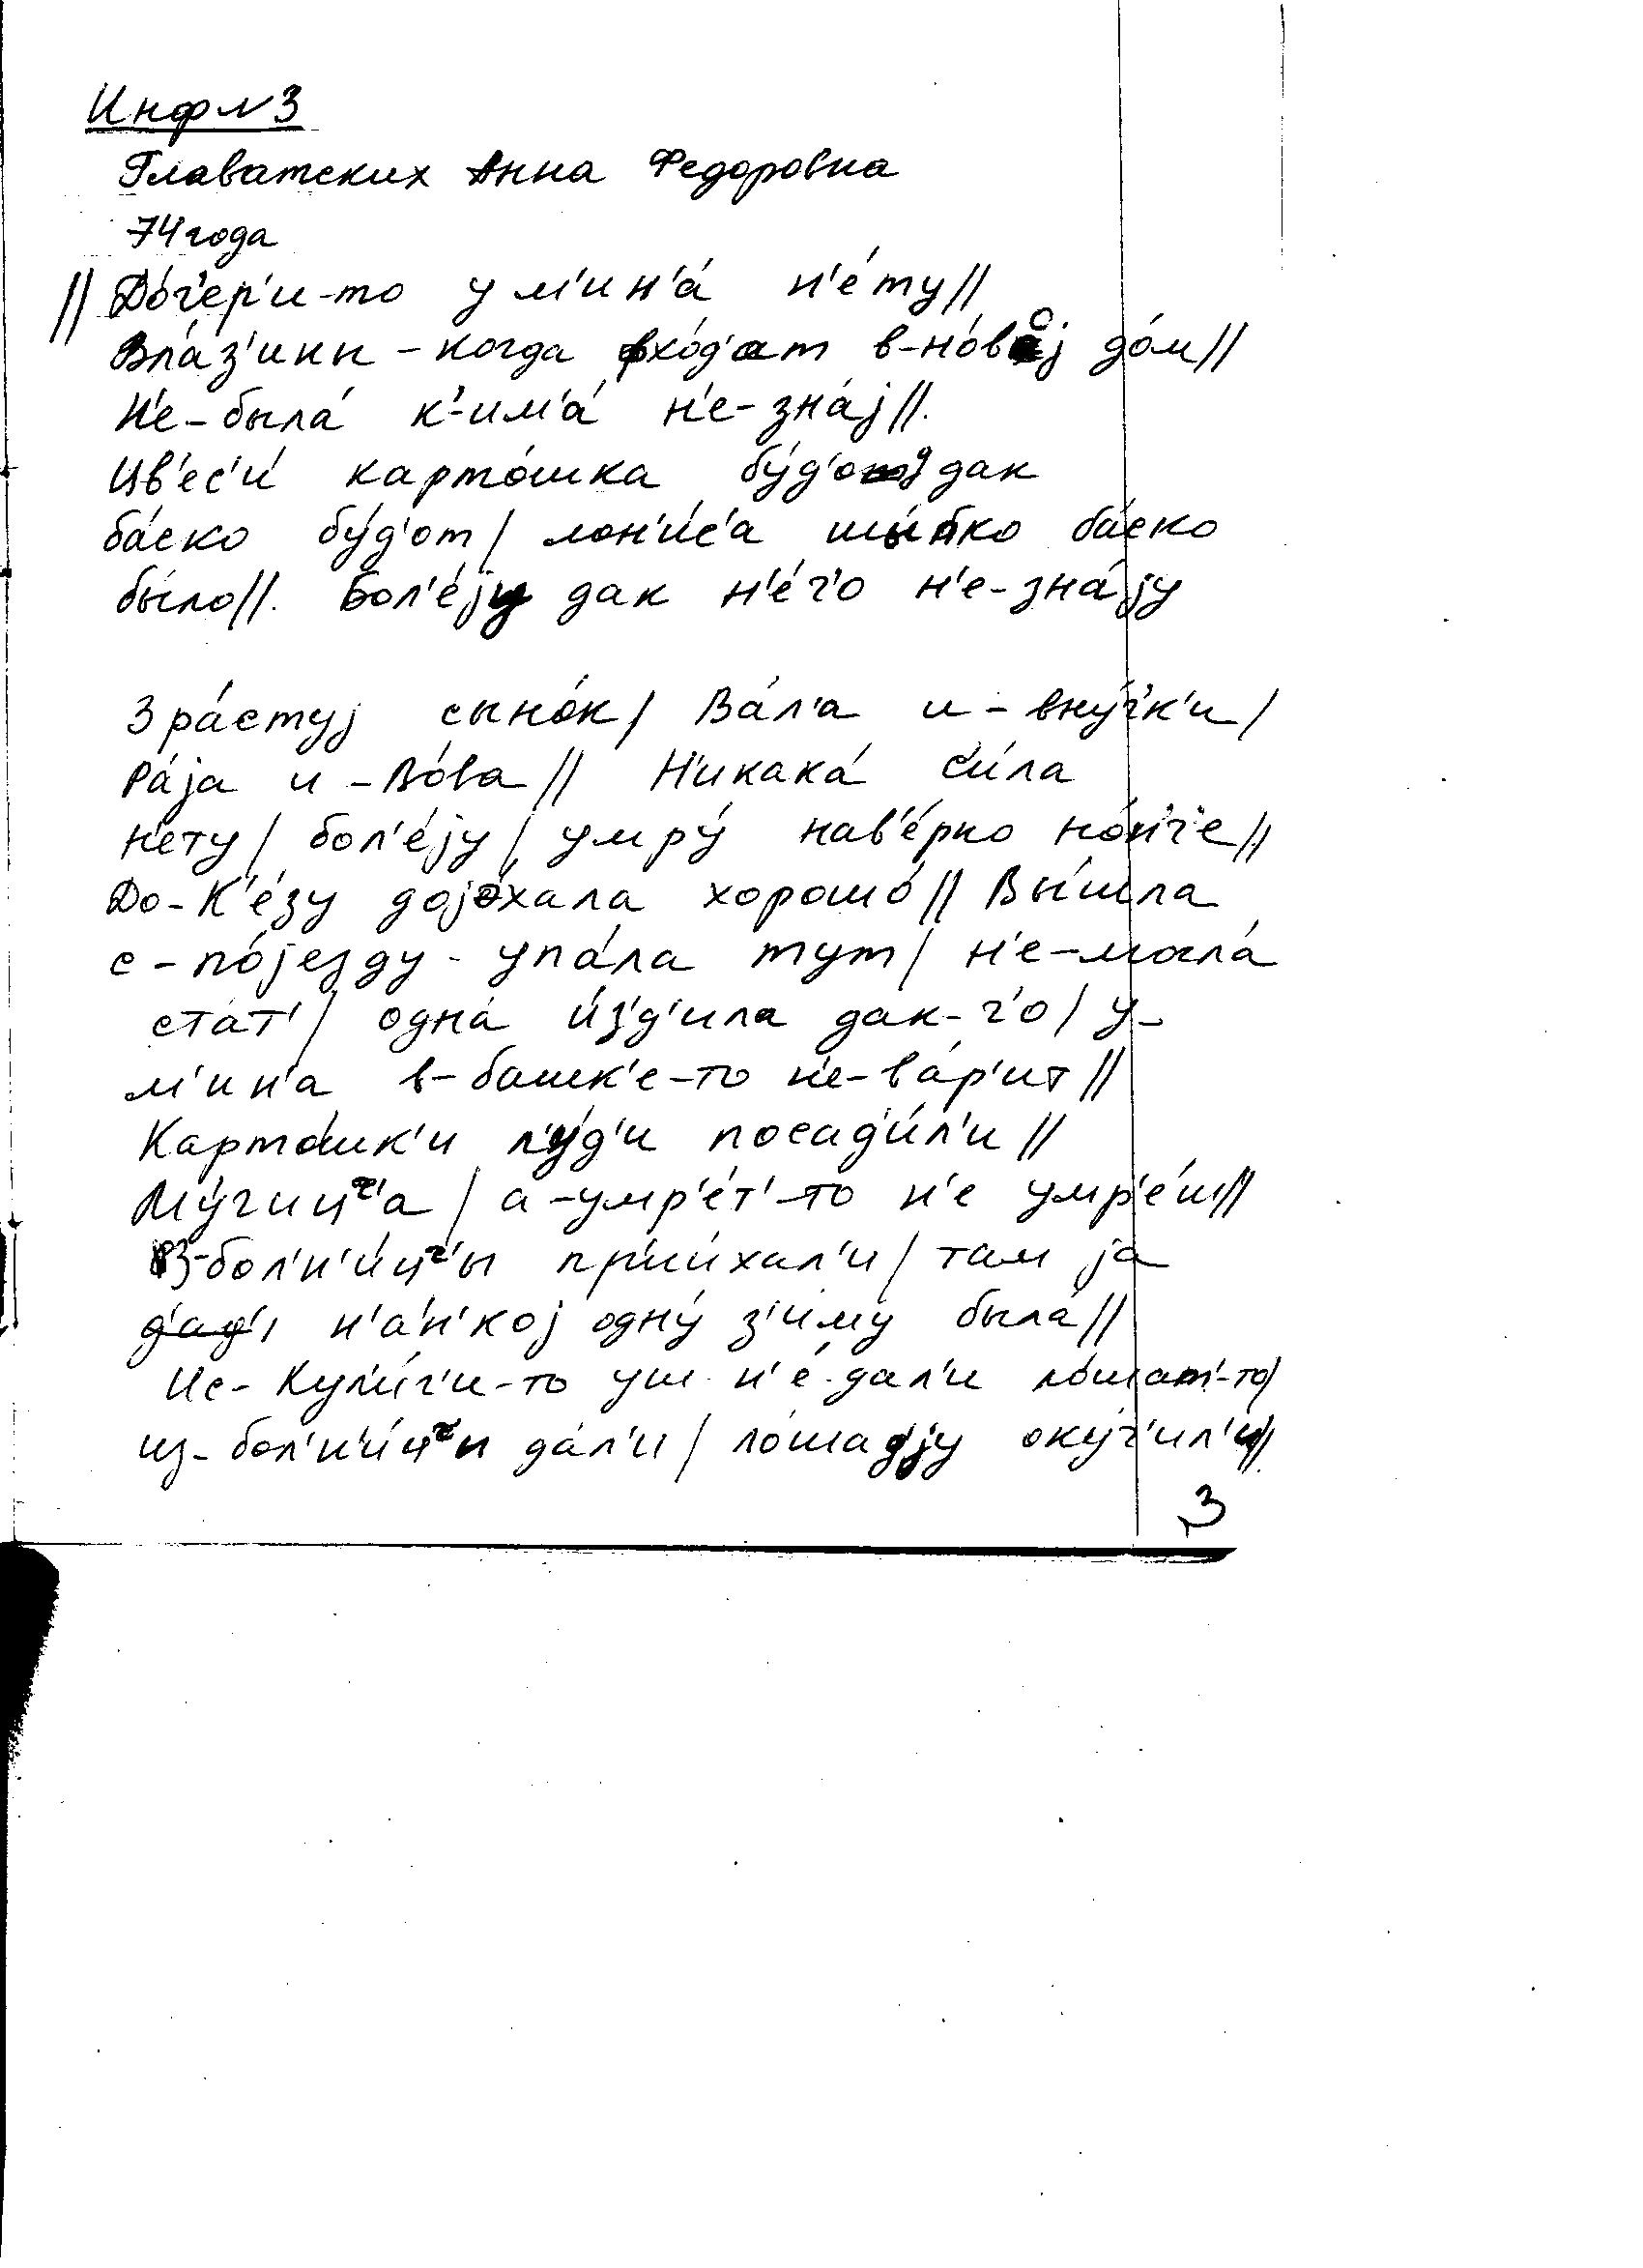 Инф №3
Главатских Анна Федоровна
74 года
// До́ч'ер'и-то у м'ин'а́ н'е́ту//
Вла́з'ины - когда вхо́д'ат в-но́вој до́м//
Н'е-была́ к'-им'а́ н'е-зна́ј//.
Цв'ес'и́ карто́шка бу́д'о дак
ба́ско бу́д'от/ лон'и́с'а шы́пко ба́ско
бы́ло//. Бол'е́ју дак н'е́ч'о н'е-зна́ју
Зра́стуј сыно́к/ Ва́л'а и-вну́ч'к'и/
Ра́ја и-Во́ва// Н'икака́ с'и́ла
н'ету/ бол'е́ју/ умру́ нав'е́рно но́н'ч'е//
До-К'е́зу дојо́хала хорошо́// Вы́шла
с-по́језду- упа́ла тут/ н'е-могла́
стат'/ одна́ и́з'д'ила дак-ч'о/ у-
м'ин'а в-башк'е-то н'е-ва́р'ит//
Карто́шк'и л'у́д'и посад'и́л'и//
Му́чицч'а/ а-умр'е́т'-то н'е умр'е́ш//
Из-бол'н'и́цч'ы пр'ии́хал'и/ там ја
н'а́н'кој одну́ з'иму́ была́//
Ис-Кул'и́г'и-то уш н'е́-дал'и ло́шат'-то/
из-бол'н'и́цчы да́л'и/ ло́шадју оку́ч'ил'и//
3